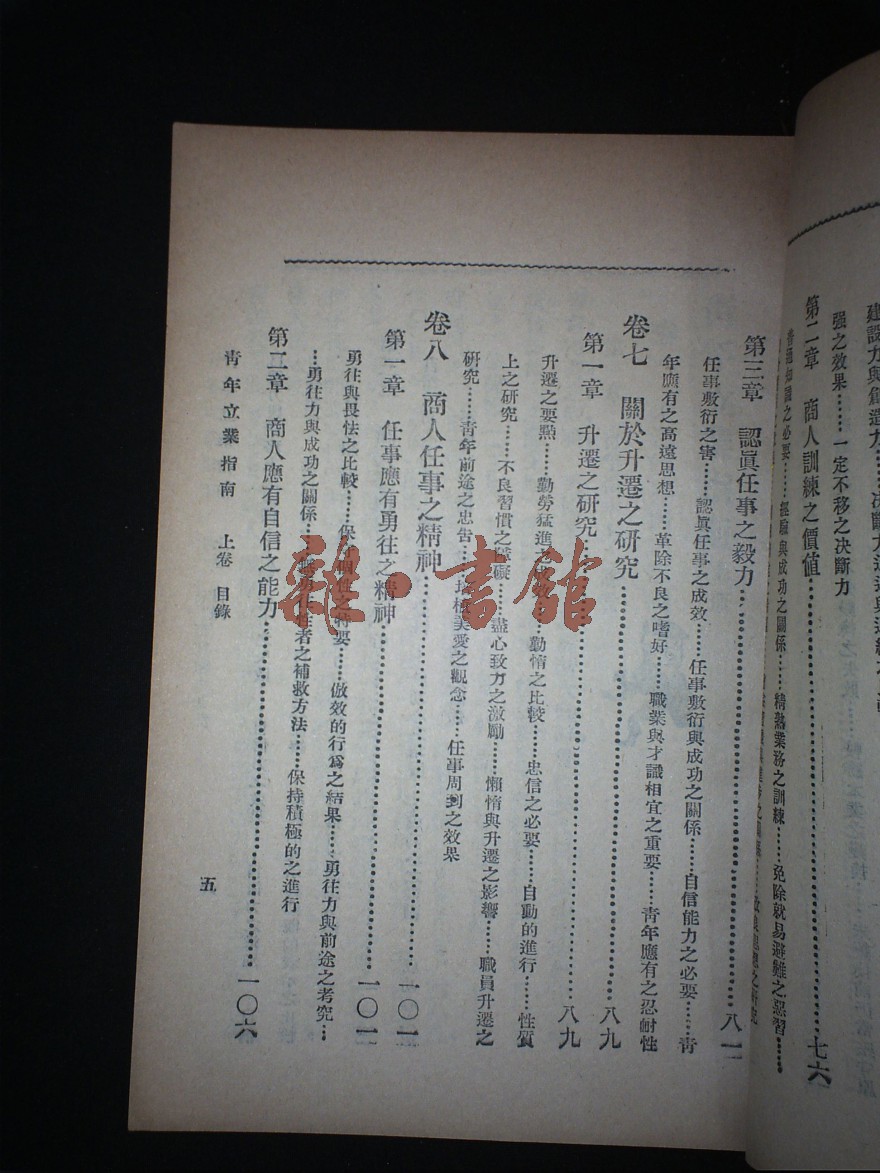 建設力與創造力……決斷力
强之效果……一定不移之決斷力
第二章　商人訓練之價値……七六
普通知識之必要……經驗與成功之關係……精熟業務之訓練……免除就易避難之惡習……
第三章　認眞任事之毅力……八一
任事敷衍之害……認眞任事之成效……任事敷衍與成功之關係……自信能力之必要……靑
年應有之高遠思想……革除不良之嗜好……職業與才識相宜之重要……靑年應有之忍耐性
卷七　關於升遷之研究……八九
第一章　升遷之研究……八九
升遷之要點……勤勞猛進之……勤惰之比較……忠信之必要……自動的進行……性質
上之研究……不良習慣之障礙……盡心致力之激勵……懶惰與升遷之影響……職員升遷之
研究……靑年前途之忠告……美愛之觀念……任事周到之效果
卷八　商人任事之精神……一〇一
第一章　任事應有勇往之精神……一〇一
勇往與畏怯之比較……保個性之特要……倣效的行爲之結果……勇往力與前途之考究…
…勇往力與成功之關係……無勇往性者之補救方法……保持積極的之進行
第二章　商人應有自信之能力……一〇六
靑年立業指南　上卷　目錄
五
雜·書館